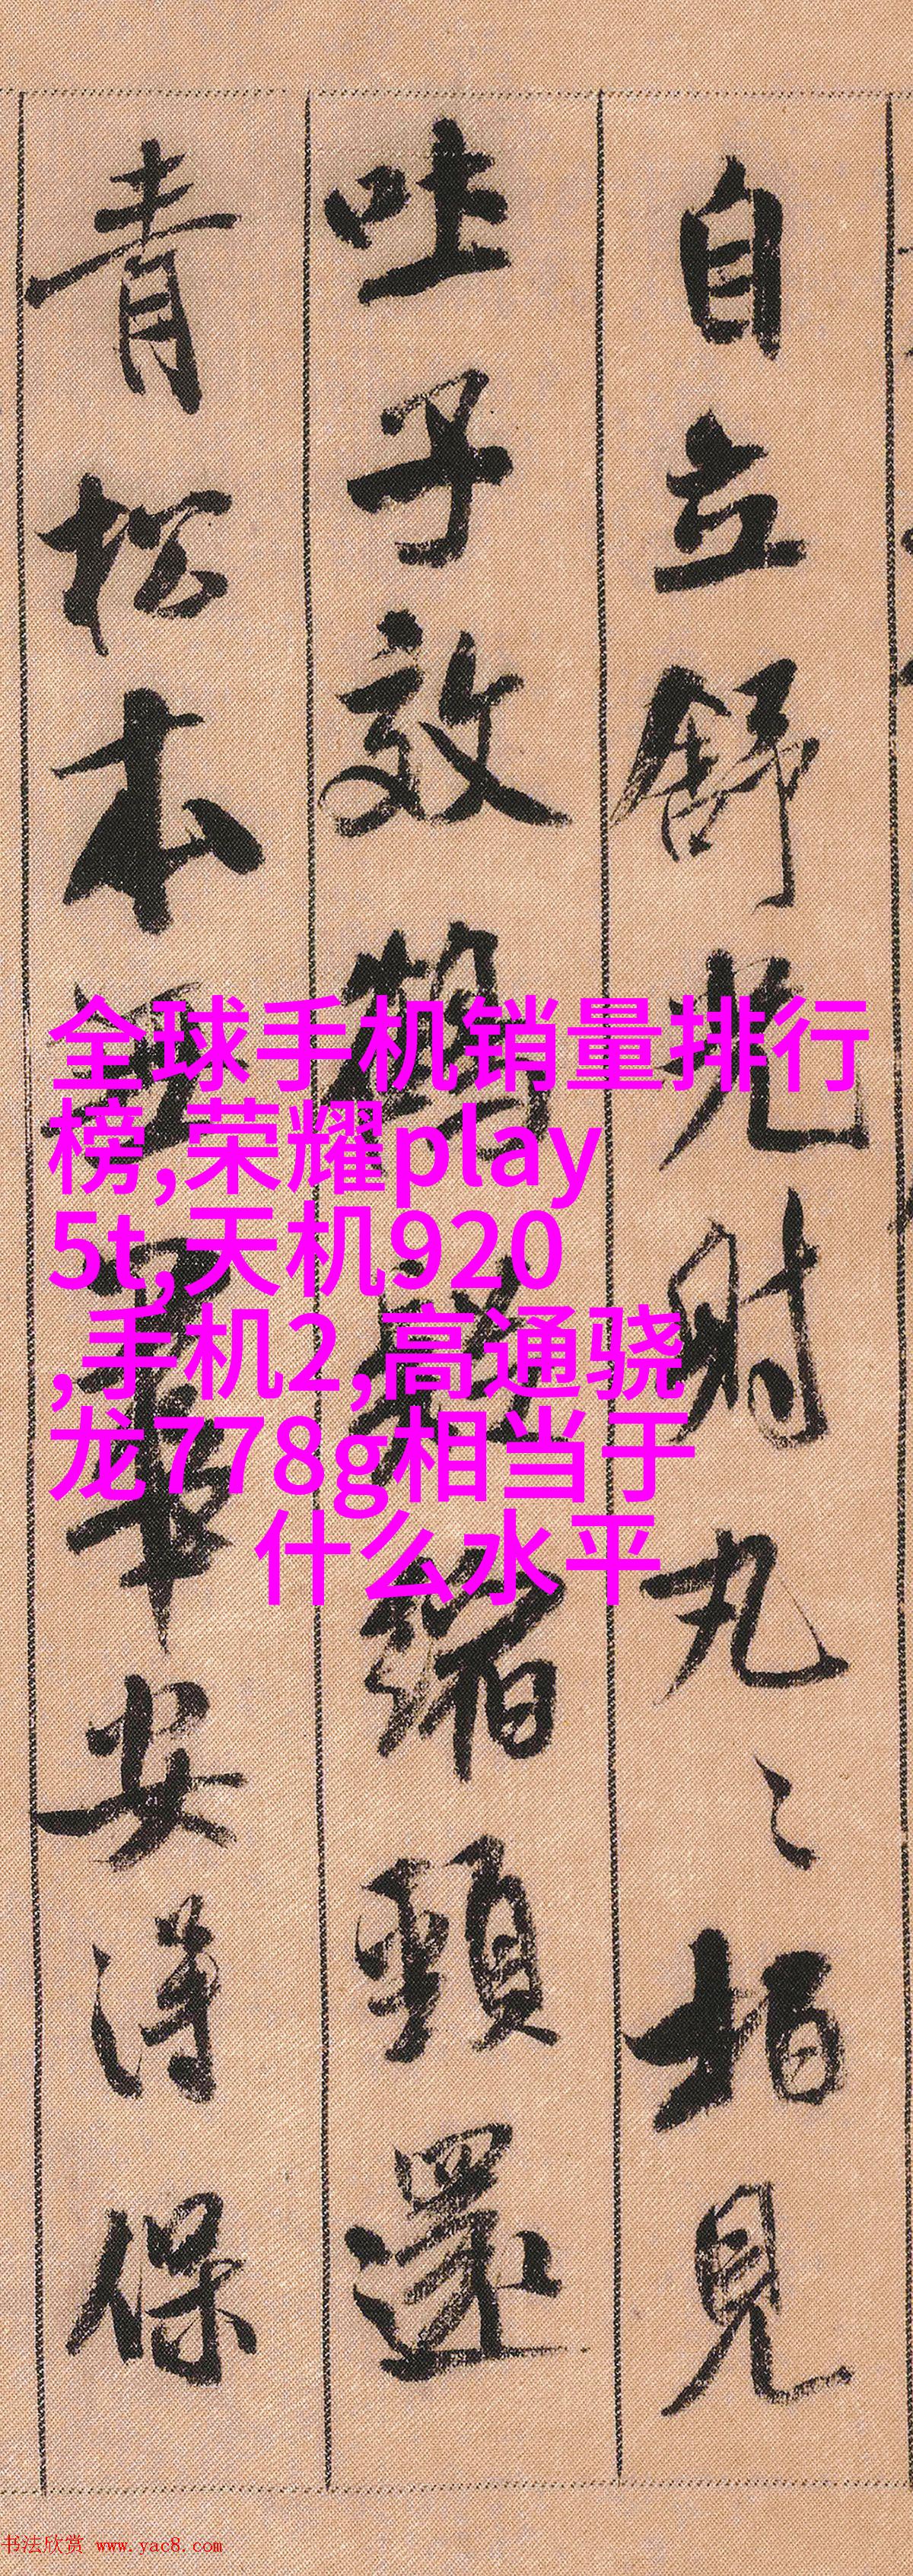 自立舒光射丸〻柏見
吐子效鶴疑縮頸還
青松本無華安得保
全球手机销量排行
榜,荣耀play
5t,天机920
,手机2,高通骁
龙778g相当于
什么水平
书法欣赏 www.yac8.com